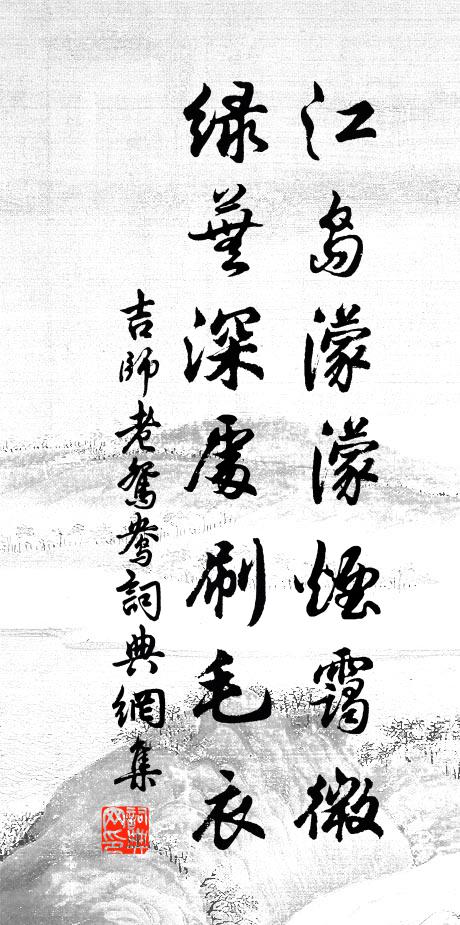 江島濛濛煙靄微
綠蕪深處刷毛衣
吉師老鴛鴦詞典網集